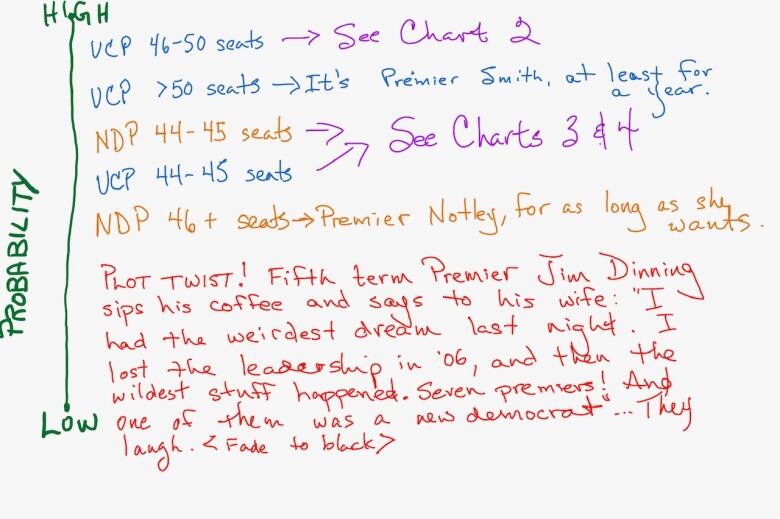 HIGH
UCP 46-50 seats → See Chart 2
UCP >50 seats → It's Premier Smith, at least for
a year.
NDP 44-45 seats → See Charts 3 & 4
UCP 44-45 seats
NDP 46+ seats → Premier Notley, for as long as she
wants.
PROBABILITY
PLOT TWIST! Fifth term Premier Jim Dinning
sips his coffee and says to his wife: "I
had the weirdest dream last night. I
lost the leadership in '06, and then the
wildest stuff happened. Seven premiers! And
one of them was a new democrat"... They
laugh. <Fade to black>
LOW